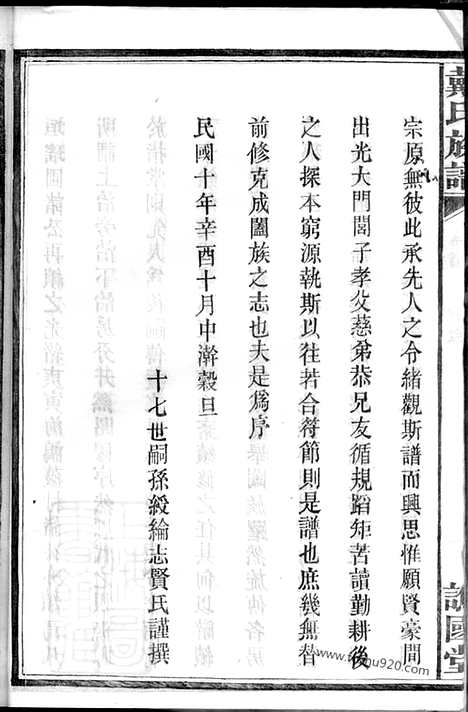 戴氏族譜
宗原無彼此承先人之令緒觀斯譜而興思惟願賢豪間
出光大門閭子孝父慈弟恭兄友循規蹈矩苦讀勤耕後
之人探本窮源執斯以往若合符節則是譜也庶幾無替
前修克成闔族之志也夫是爲序
民國十年辛酉十月中澣穀旦
十七世嗣孫綬綸志賢氏謹撰
國堂